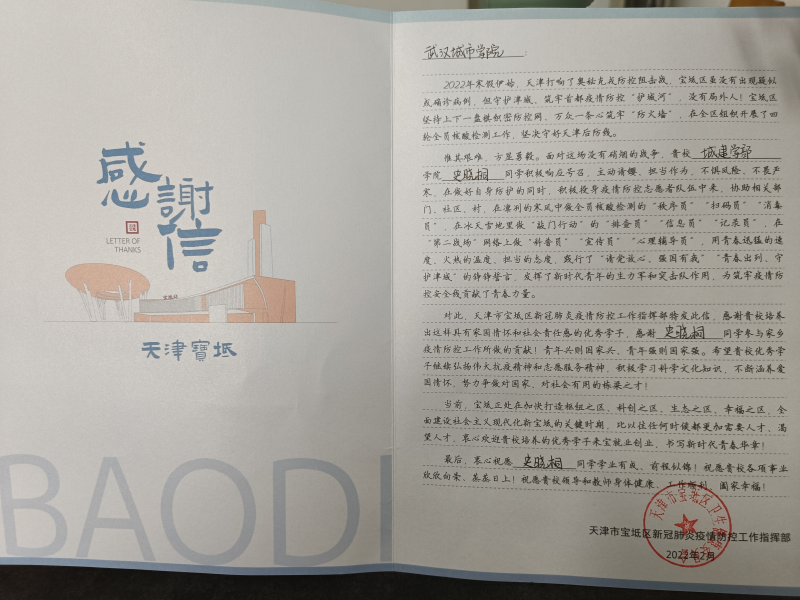 感謝信
LETTER OF
THANKS
天津寶坻
BAODI
武汉城市学院
2022年寒假伊始，天津打响了奥秘克戎防控阻击战，宝坻区虽没有出现疑似
或确诊病例，但守护津城，筑牢首都疫情防控“护城河”，没有局外人！宝坻区
坚持上下一盘棋织密防控网、万众一条心筑牢“防火墙”，在全区组织开展了四
轮全员核酸检测工作，坚决守好天津后防线。
惟其艰难，方显勇毅。面对这场没有硝烟的战争，贵校 城建学部
学院 史晓桐 同学积极响应号召，主动请缨、担当作为，不惧风险、不畏严
寒，在做好自身防护的同时，积极投身疫情防控志愿者队伍中来，协助相关部
门、社区、村，在凛冽的寒风中做全员核酸检测的“秩序员”“扫码员”“消毒
员”，在冰天雪地里做“敲门行动”的“排查员”“信息员”“记录员”，在
“第二战场”网络上做“科普员”“宣传员”“心理辅导员”，用青春迅猛的速
度、火热的温度、担当的态度，践行了“请党放心、强国有我”“青春出列、守
护津城”的铮铮誓言，发挥了新时代青年的生力军和突击队作用，为筑牢疫情防
控安全线贡献了青春力量。
对此，天津市宝坻区新冠肺炎疫情防控工作指挥部特发此信，感谢贵校培养
出这样具有家国情怀和社会责任感的优秀学子，感谢 史晓桐 同学参与家乡
疫情防控工作所做的贡献！青年兴则国家兴，青年强则国家强。希望贵校优秀学
子继续弘扬伟大抗疫精神和志愿服务精神，积极学习科学文化知识，不断涵养爱
国情怀，努力争做对国家、对社会有用的栋梁之才！
当前，宝坻正处在加快打造枢纽之区、科创之区、生态之区、幸福之区，全
面建设社会主义现代化新宝坻的关键时期，比以往任何时候都更加需要人才、渴
望人才，衷心欢迎贵校培养的优秀学子来宝就业创业，书写新时代青春华章！
最后，衷心祝愿 史晓桐 同学学业有成、前程似锦！祝愿贵校各项事业
欣欣向荣、蒸蒸日上！祝愿贵校领导和教师身体健康、工作顺利、阖家幸福！
天津市宝坻区新冠肺炎疫情防控工作指挥部
2022年2月